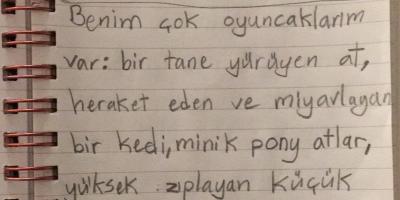 Benim çok oyuncaklarım
var: bir tane yürüyen at,
heraket eden ve miyavlayan
bir kedi, minik pony atlar,
yüksek zıplayan küçük